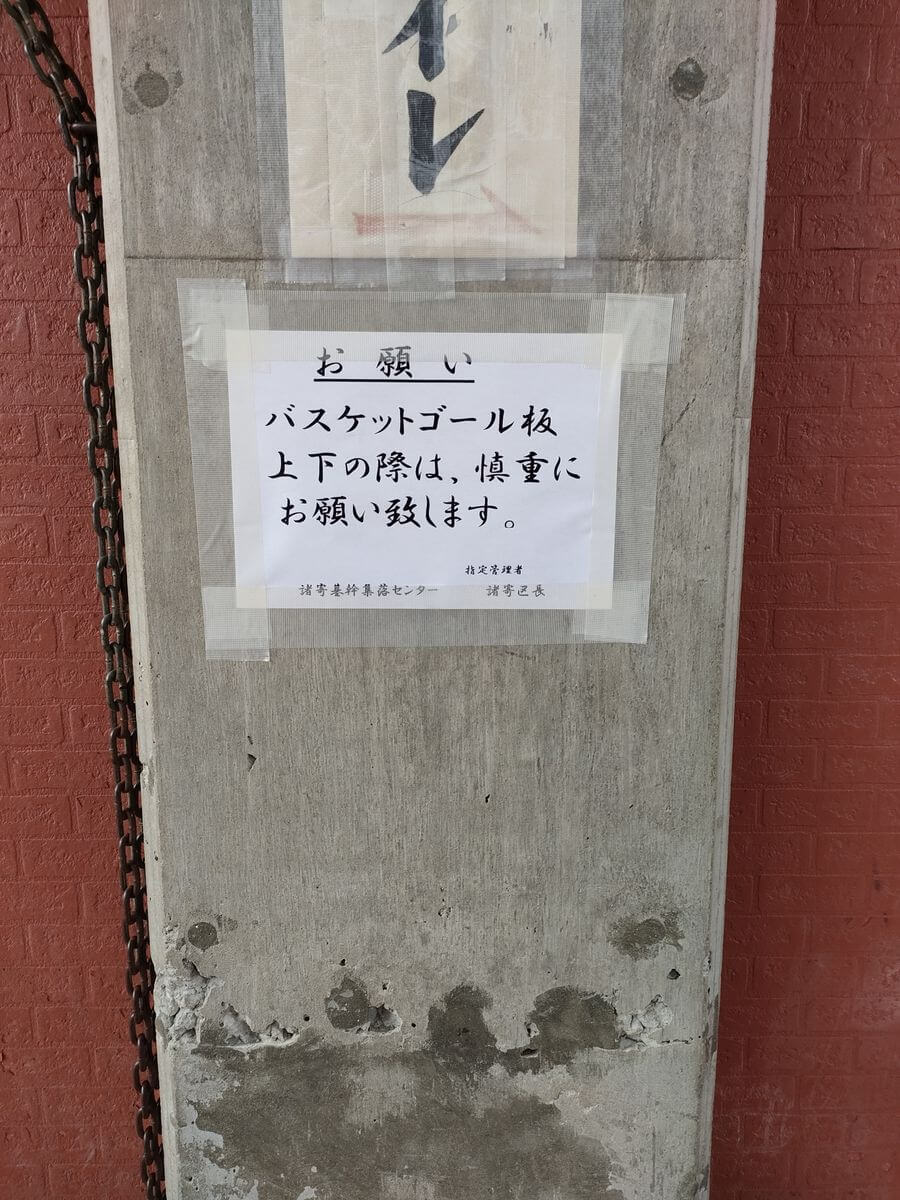 イレ
お願い
バスケットゴール板
上下の際は、慎重に
お願い致します。
指定管理者
諸寄基幹集落センター 諸寄区長